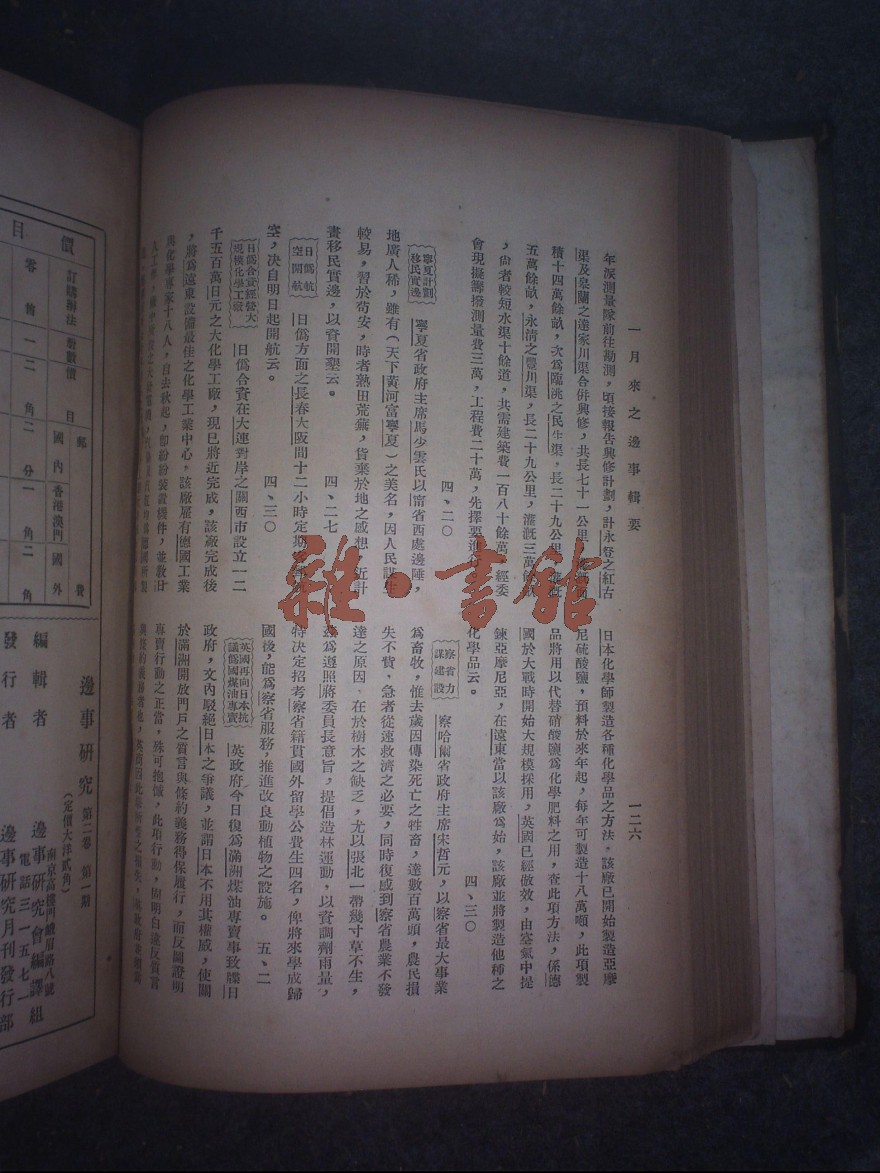 一月來之邊事輯要
一二六
年派測量隊前往勘測，頃接報告興修計劃，計永登之紅古
渠及皋蘭之達家川渠合併興修，共長七十一公里，
積十四萬餘畝，次爲臨洮之民生渠，長二十九公里，
五萬餘畝，永清之豐川渠，長二十九公里，灌漑三萬餘畝
，倘者較短水渠十餘道，共需建築費一百八十餘萬，經委
會現擬籌撥測量費三萬，工程費二十萬，先擇要進行
四、二〇
寧夏計劃移民實邊
寧夏省政府主席馬少雲氏以甯省西處邊陲，
地廣人稀，雖有（天下黃河富寧夏）之美名，因人民謀生
較易，習於苟安，時者熟田荒蕪，貨棄於地之感想，近計
畫移民實邊，以資開墾云。
四、二七
日僞航空開航
日僞方面之長春大阪間十二小時定期
空，決自明日起開航云。
四、三〇
日僞合資經營大規模化學工廠
日僞合資在大連對岸之關西市設立一二
千五百萬日元之大化學工廠，現已將近完成，該廠完成後
，將爲遠東設備最佳之化學工業中心，該廠雇有德國工業
與化學專家十八人，自去秋起，卽紛紛裝置機件，並敎日
日本化學師製造各種化學品之方法，該廠已開始製造亞摩
尼硫酸鹽，預料於來年起，每年可製造十八萬噸，此項製
品將用以代替硝酸鹽爲化學肥料之用，查此項方法，係德
國於大戰時開始大規模採用，英國已經倣效，由空氣中提
鍊亞摩尼亞，在遠東當以該廠爲始，該廠並將製造他種之
化學品云。
四、三〇
察省力謀建設
察哈爾省政府主席宋哲元，以察省最大事業
爲畜牧，惟去歲因傳染死亡之牲畜，達數百萬頭，農民損
失不貲，急者從速救濟之必要，同時復感到察省農業不發
達之原因，在於樹木之缺乏，尤以張北一帶幾寸草不生，
茲爲遵照蔣委員長意旨，提倡造林運動，以資調劑雨量，
特決定招考察省籍貫國外留學公費生四名，俾將來學成歸
國後，能爲察省服務，推進改良動植物之設施。
五、二
英國再向日本抗議僞國煤油專賣
英政府今日復爲滿洲煤油專賣事致牒日
政府，文內駁絕日本之爭議，並謂日本不用其權威，使關
於滿洲開放門戶之質言與條約義務得保履行，而反圖證明
專賣行動之正當，殊可抱憾，此項行動，固明白違反質言
價目
訂購辦法 冊數 價目 郵費
國內 香港澳門 國外
零售 一 二角 二分 一角 二角
邊事研究 第二卷 第一期
（定價大洋貳角）
編輯者 邊事研究會編譯組
南京高樓門峨眉路八號
電話三一五七一
發行者 邊事研究月刊發行部
雜·書館